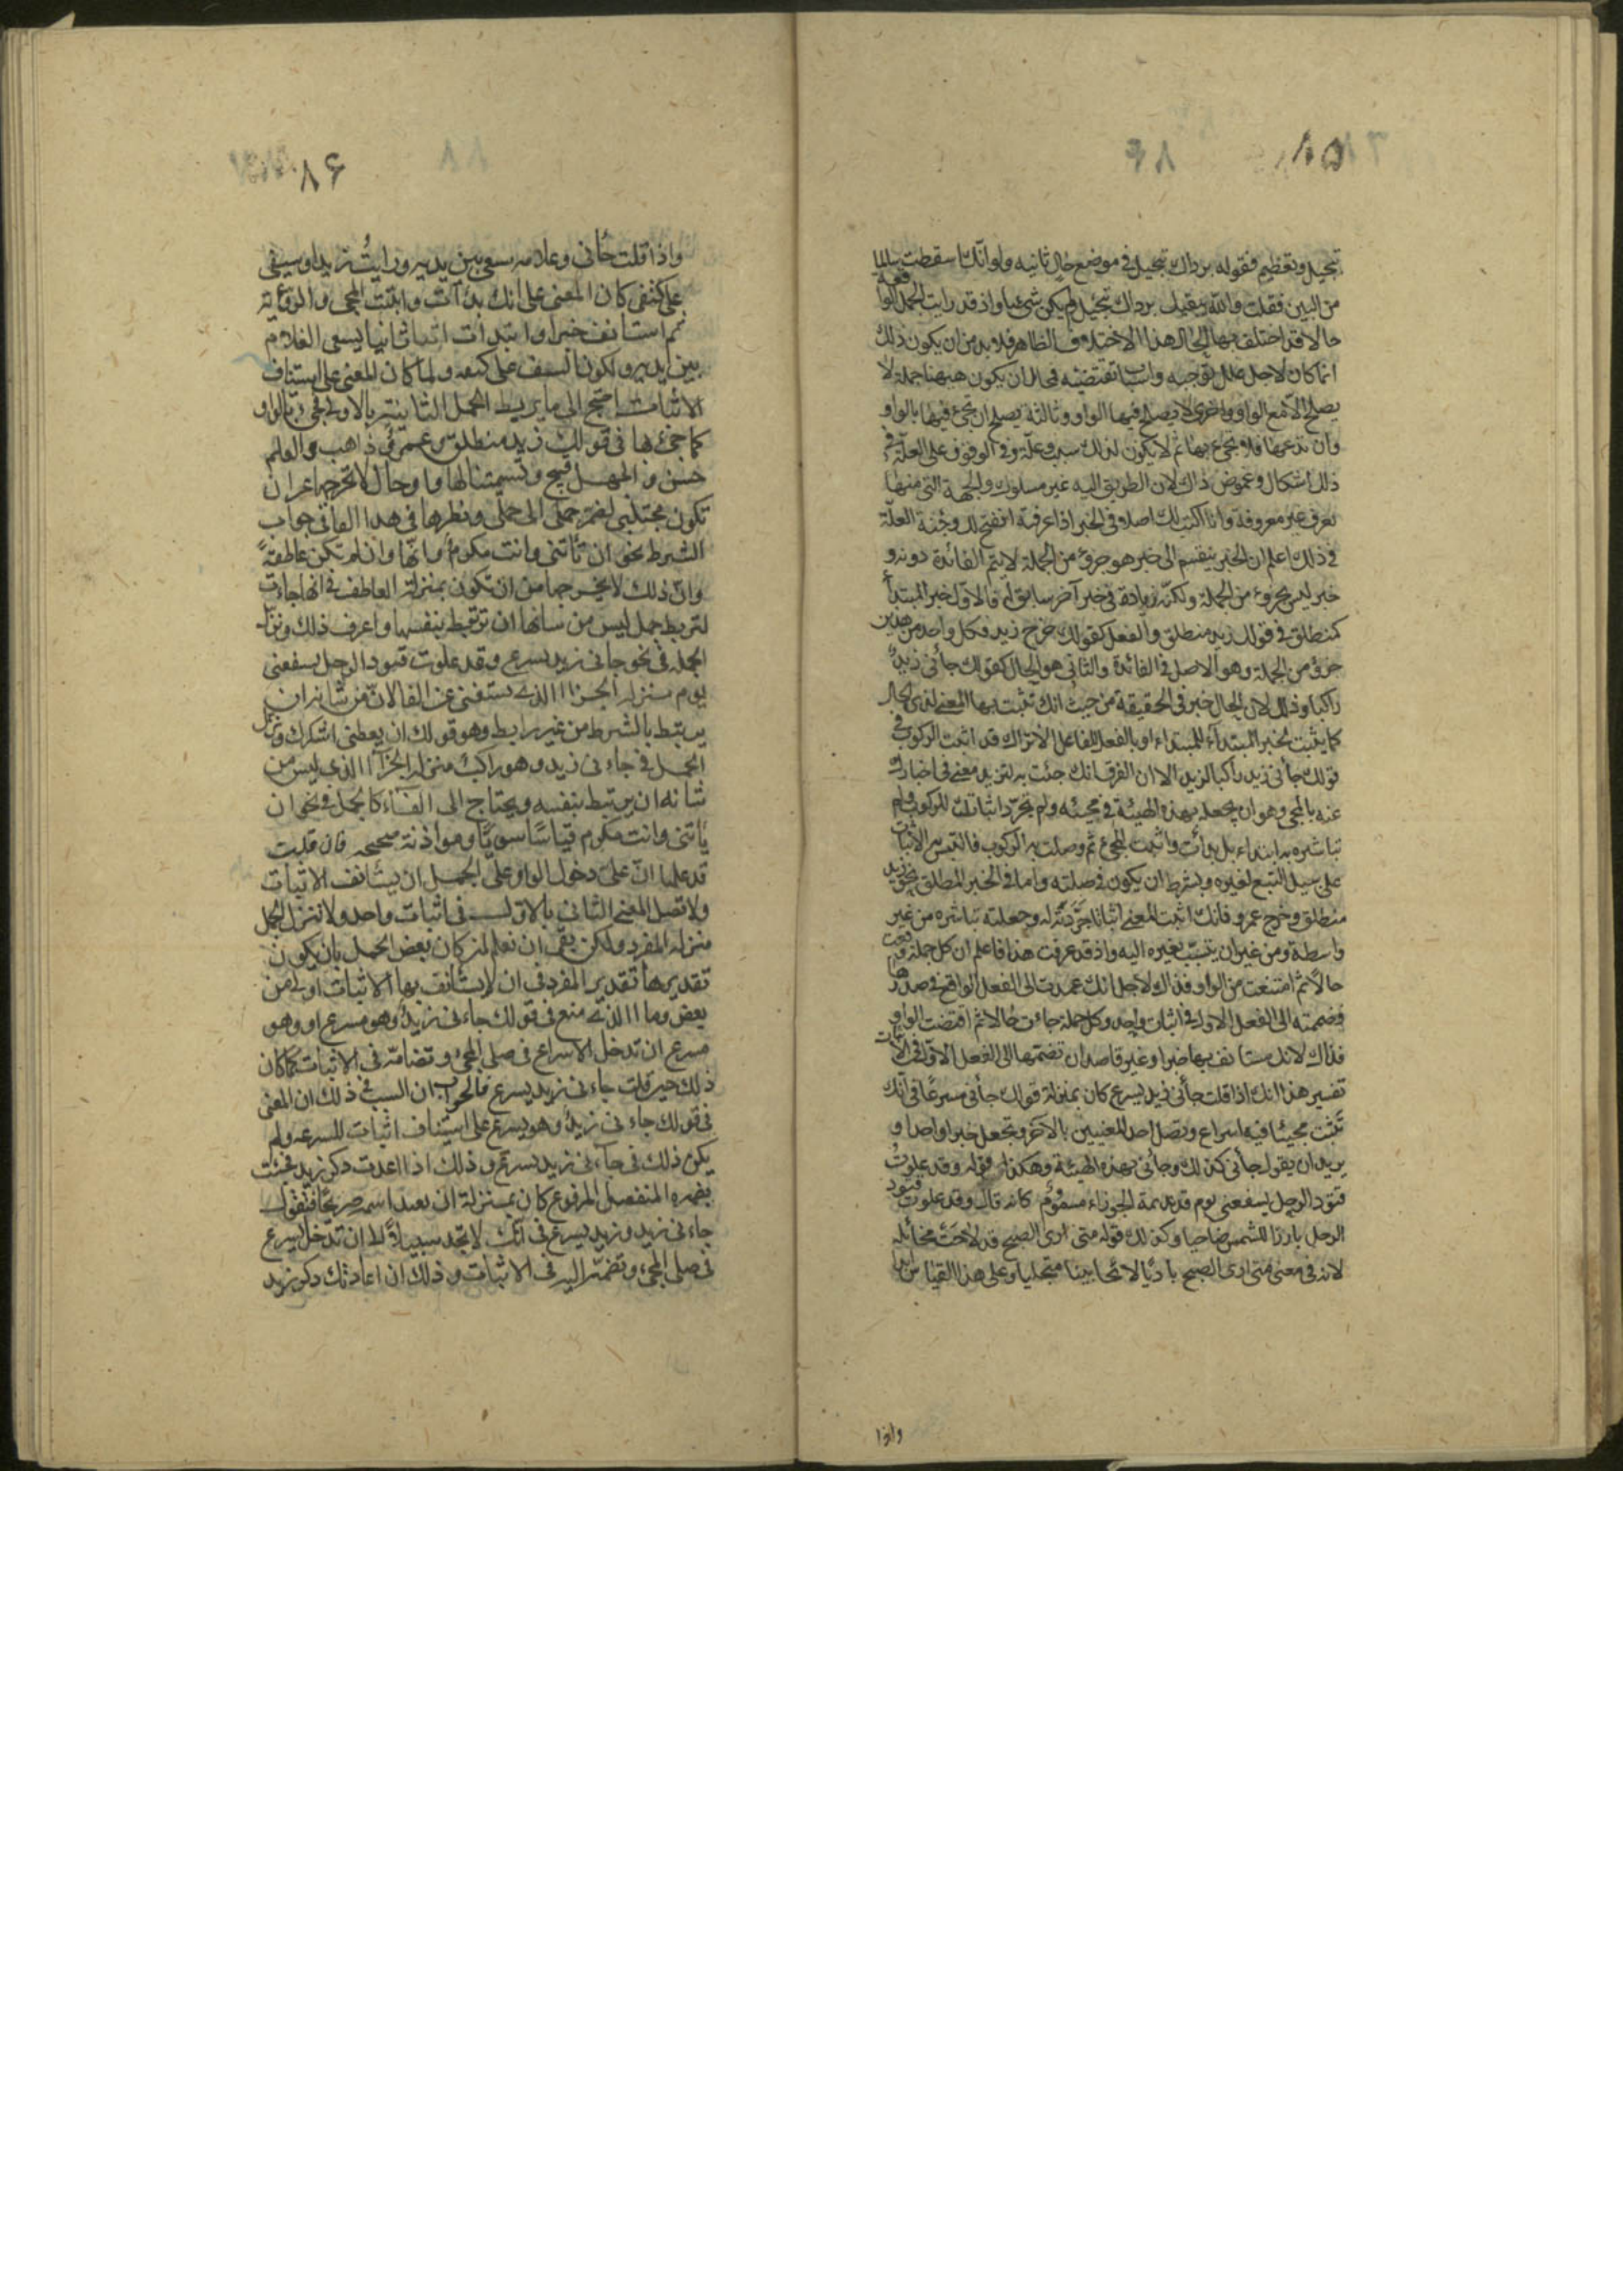 ٨٥
تبجيل وتعظيم فقوله برداك تبجيل في موضع حال ثانيه ولو انك اسقطت سالما
من البين فقلت والله يبقيك برداك تبجيل لم يكن شيئا واذ قد رايت الجمل الواقعة
حالا قد اختلف بها الحال هذا الاختلاف الظاهر فلا بد من ان يكون ذلك
انما كان لاجل علل توجبه واسباب تقتضيه فمحال ان يكون ههنا جملة لا
يصلح الا مع الواو واخرى لا يصلح فيها الواو وثالثة يصلح ان تجئ فيها بالواو
وان تدعها فلا تجئ بها ثم لا يكون لذلك سبب وعلة وفي الوقوف على العلة في
ذلك اشكال وغموض ذاك لان الطريق اليه غير مسلوك والجهة التي منها
تعرف غير معروفة وانا اكتب لك اصلا في الخبر اذا عرفته انفتح لك وجه العلة
في ذلك اعلم ان الخبر ينقسم الى خبر هو جزؤ من الجملة لا يتم الفائدة دونه و
خبر ليس بجزوء من الجملة ولكنه زيادة في خبر آخر سابق له فالاول خبر المبتدأ
كمنطلق في قولك زيد منطلق والفعل كقولك خرج زيد فكل واحد من هذين
جزؤ من الجملة وهو الاصل في الفائدة والثاني هو الحال كقولك جأني زيدٌ
راكبا وذلك لان الحال خبر في الحقيقة من حيث انك تثبت بها المعنى لذي الحال
كما يثبت بخبر المبتدأ للمبتداء او بالفعل للفاعل الا تراك قد اثبت الركوب في
قولك جأني زيد راكبا لزيد الا ان الفرق انك جئت به لتزيد معنى في اخبارك
عنه بالمجى وهو ان يجعله بهذه الهيئة في مجيئه ولم تجرّد اثباتك للركوب ولم
تباشره به ابتداء بل بدأت واثبت المجئ ثم وصلت به الركوب فالتبس به الاثبات
على سبيل التبع لغيره وبشرط ان يكون في صلته واما في الخبر المطلق نحو زيد
منطلق وخرج عمرو فانك اثبت المعنى اثباتا جَرّدتَه له وجعلته تباشره من غير
واسطة ومن غير ان يتسبب بغيره اليه واذ قد عرفت هذا فاعلم ان كل جملة وقعت
حالاً ثم امتنعت من الواو فذاك لاجل انك عمدت الى الفعل الواقع في صدرها
فضممته الى الفعل الاول في اثبات واحد وكل جملة جاءت حالا ثم اقتضت الواو
فذاك لانك مستأنف بها خبرا وغير قاصد ان تضمها الى الفعل الاول في الاثبات
تفسير هذا انك اذا قلت جأني زيد يسرع كان بمنزلة قولك جأني مسرعًا في انك
تثبت مجيئا فيه اسراع وتصل احد المعنيين بالآخر وتجعل خبرا واحدا و
يريد ان يقول جأني كذلك وجأني بهذه الهيئة وهكذا قوله وقد علوتُ
قتود الرحل يسفعني يوم قديديمة الجوزاء مسمومُ كانه قال وقد علوت قتود
الرحل بارزا للشمس ضاحيا وكذلك قوله متى ارى الصبح قد لاحَتْ مخائله
لانه في معنى متى ارى الصبح باديًا لائحا بينا متجليا وعلى هذا القياس ابدا
واذا
٨۶
واذا قلت جأني وغلامه يسعى بين يديه ورايتُ زيدا وسيفه
على كتفه كان المعنى على انك بدأت واثبت المجى والروية
ثم استأنف خبرا وابتدأت اثباتا ثانيا ليسعى الغلام
بين يديه ولكون السيف على كتفه ولما كان المعنى على استيناف
الاثبات احتج الى ما يربط الجمل الثانية بالاولى فجئ بالواو
كما جئ بها في قولك زيد منطلق وعمرو ذاهب والعلم
حسن والجهل قبيح وتسميتنا لها واو حال لا تخرجها عن ان
تكون مجتلبة لضمّ جملة الى جملة ونظيرها في هذا الفا في جواب
الشرط نحو ان تأتني وانت مكرم فانها وان لم تكن عاطفةً
وان ذلك لا يخرجها من ان تكون بمنزلة العاطف في انها جاءت
لتربط جمل ليس من شانها ان ترتبط بنفسها واعرف ذلك ونزل
الجملة في نحو جاني زيد يسرع وقد علوت قتود الرحل يسفعني
يوم منزلة الجزاء الذي يستغني عن الفا لان من شانه ان
يرتبط بالشرط من غير رابط وهو قولك ان يعطني اشكرك ونزل
الجمل في جاء ني زيد وهو راكب منزلة الجزآء الذي ليس من
شانه ان يرتبط بنفسه ويحتاج الى الفآء كالجمل في نحو ان
ياتني وانت مكرم قياسًا سويًا وموازنة صحيحه فان قلت
قد علمنا ان على دخول الواو على الجمل ان يستأنف الاثبات
ولا تصل المعنى الثاني بالاول في اثبات واحد ولا تنزل الجمل
منزلة المفرد ولكن بقي ان نعلم لم كان بعض الجمل بان يكون
تقديرها تقدير المفرد في ان لا يستأنف بها الاثبات اولى من
بعض وما الذي منع في قولك جاء ني زيدٌ وهو مسرع او وهو
مسرع ان تدخل الاسراع في صلى المجئ وتضامّه في الاثبات كما كان
ذلك حين قلت جاء ني زيد يسرع فالجواب ان السبب في ذلك ان المعنى
في قولك جاء ني زيدٌ وهو يسرع على استيناف اثبات للسرعه ولم
يكن ذلك في جآء ني زيد يسرع وذلك اذا اعدت ذكر زيد فجئت
بضميره المنفصل المرفوع كان بمنزلة ان تعيد اسمه صريحًا فتقول
جاء ني زيد وزيد يسرع في انك لا تجد سبيلاً الى ان تدخل يسرع
في صلى المجئ وتضمّه اليه في الاثبات وذلك ان اعادتك ذكر زيد